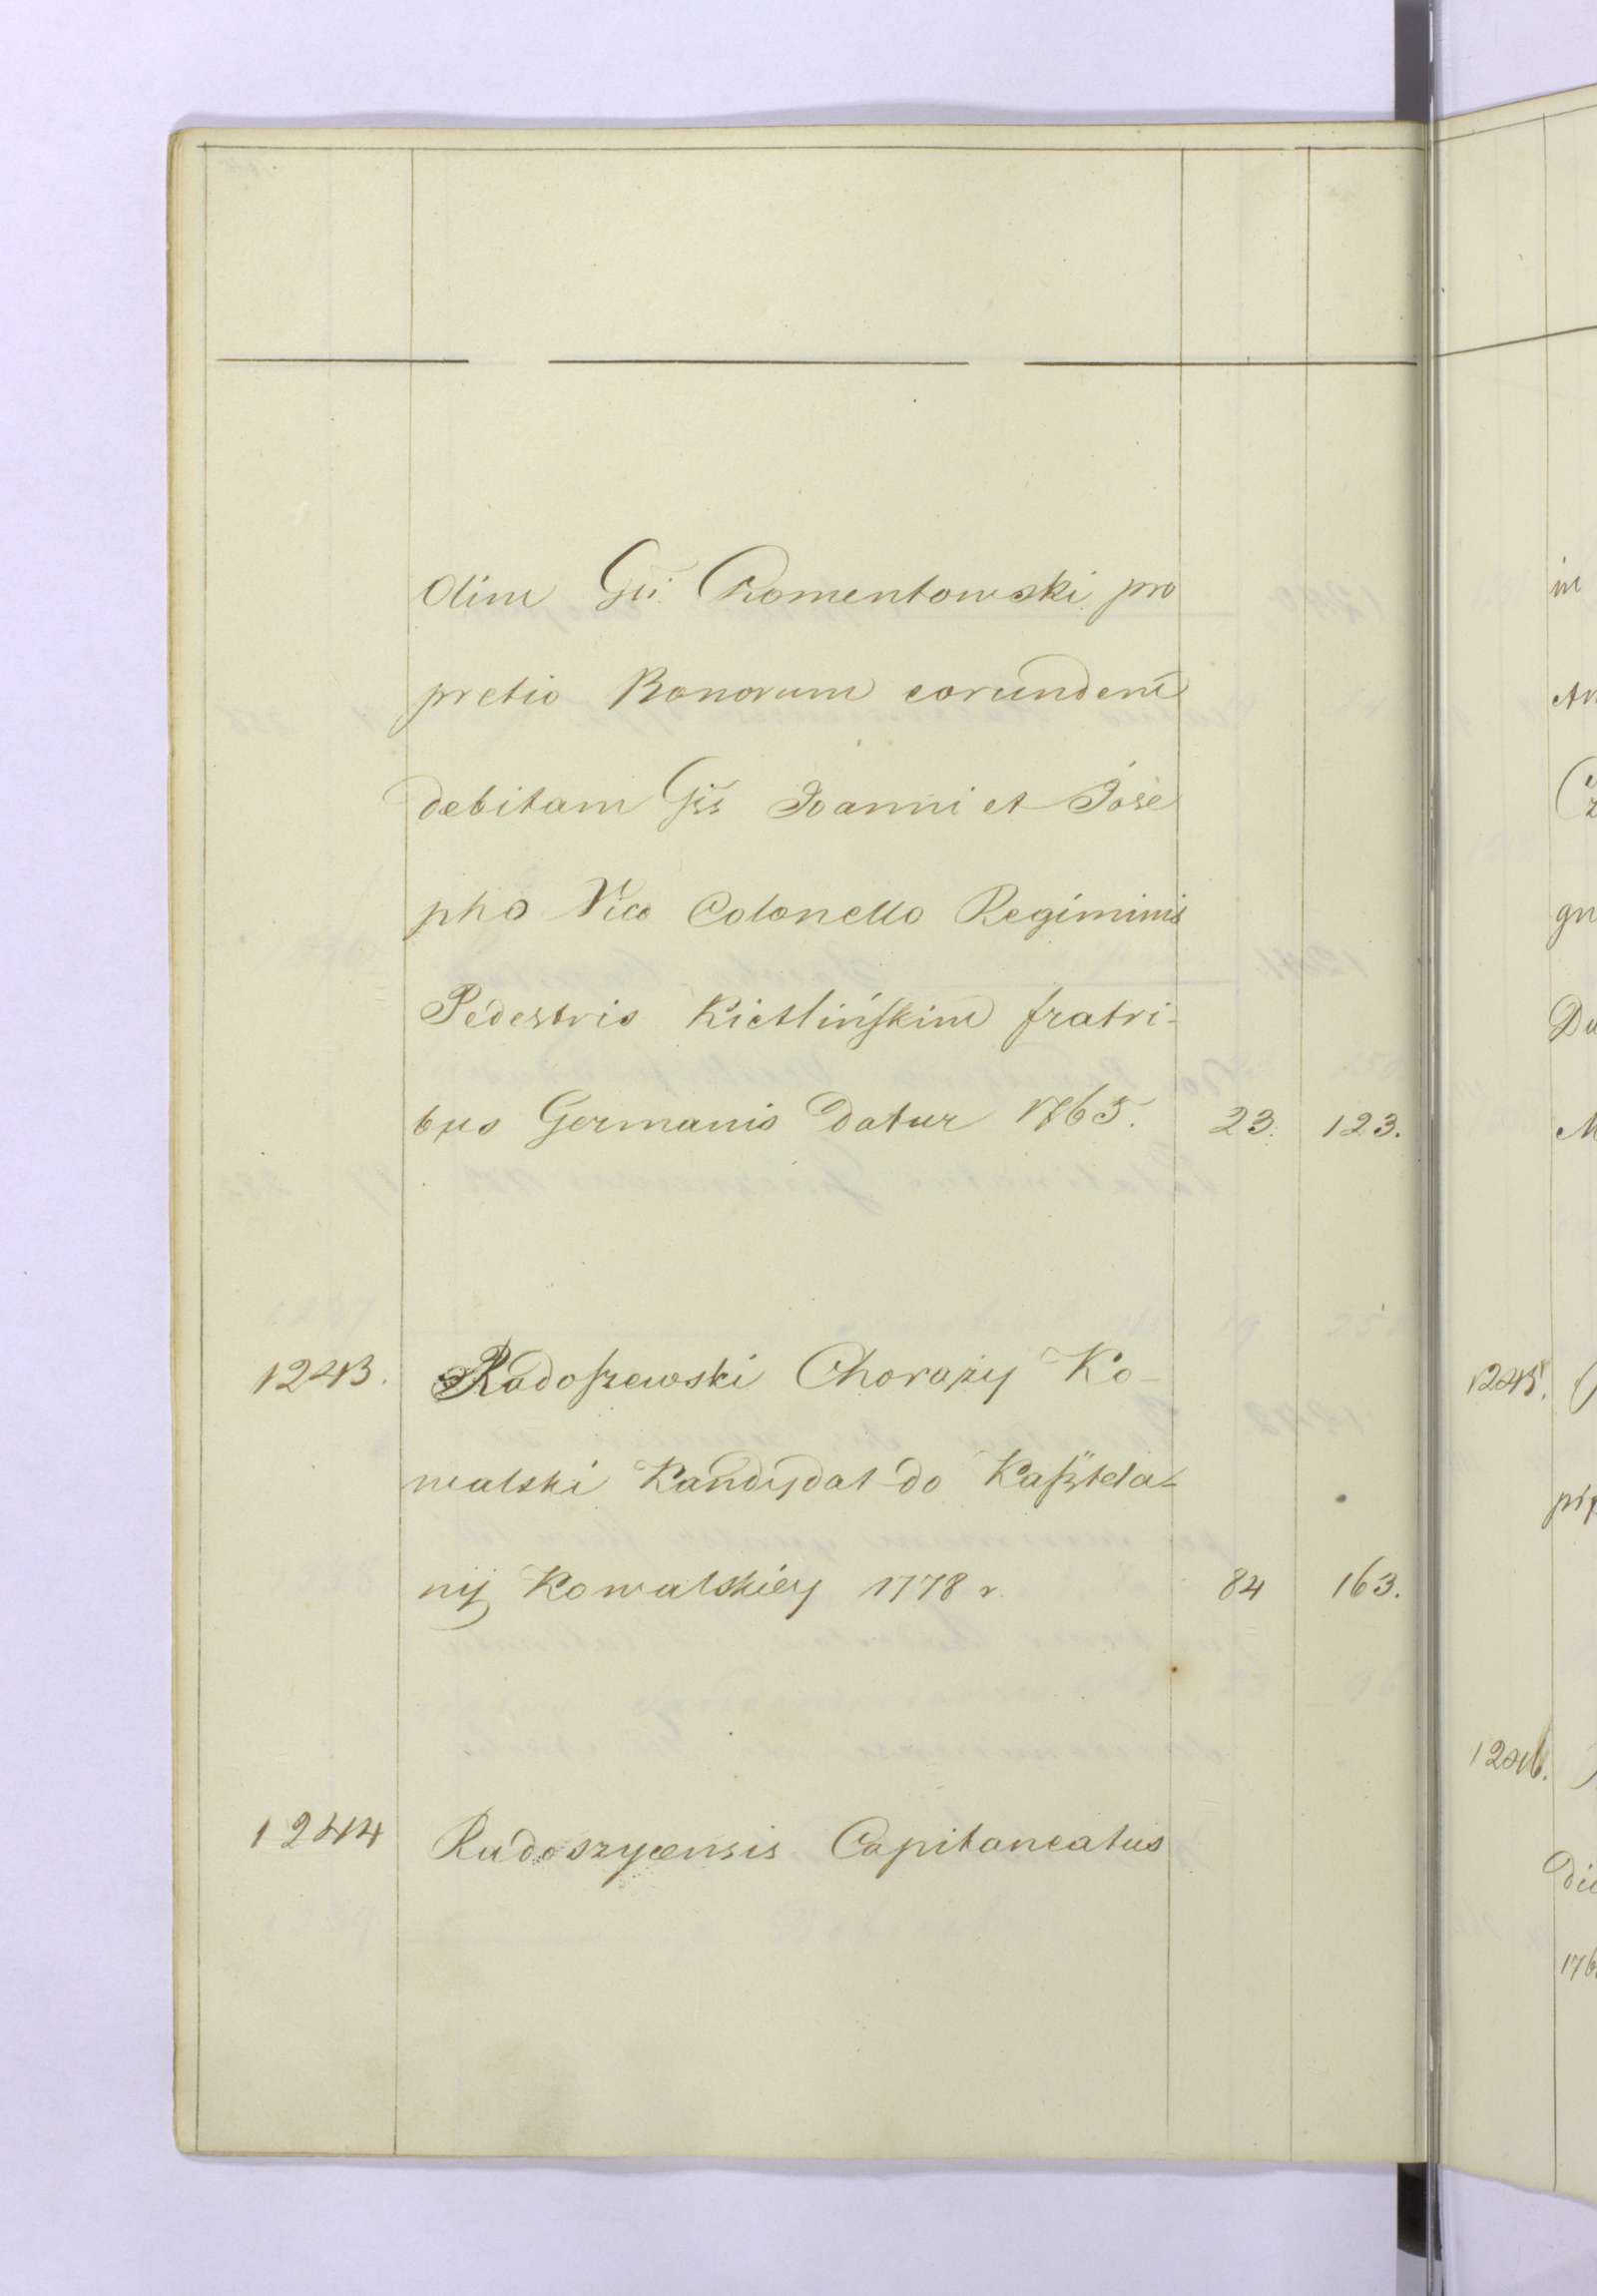 olim Gsi Romentowski pro
pretio Bonorum eorundem
debitam Gss Joanni et Jose
pho Vice Colonello Regiminis
Pedestris Kietlińskim fratri-
bus Germanis datur 1765. 23. 123.
1243. Radoszewski Chorąży Ko-
walski Kandydat do Kasztela-
nij Kowalskiey 1778 r. 84 163.
1244 Radoszycensis Capitaneatus
in
Du
1245.
1246.